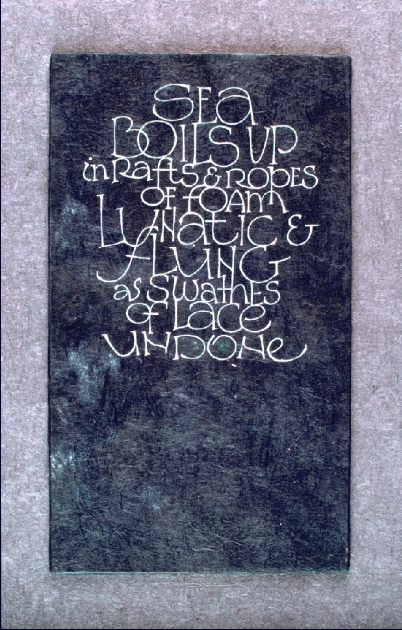 SEA
BOILS UP
in Rafts & ROPES
OF fOAM
LUNATIC &
fLUNG
as SWATHES
of LACE
UNDONE